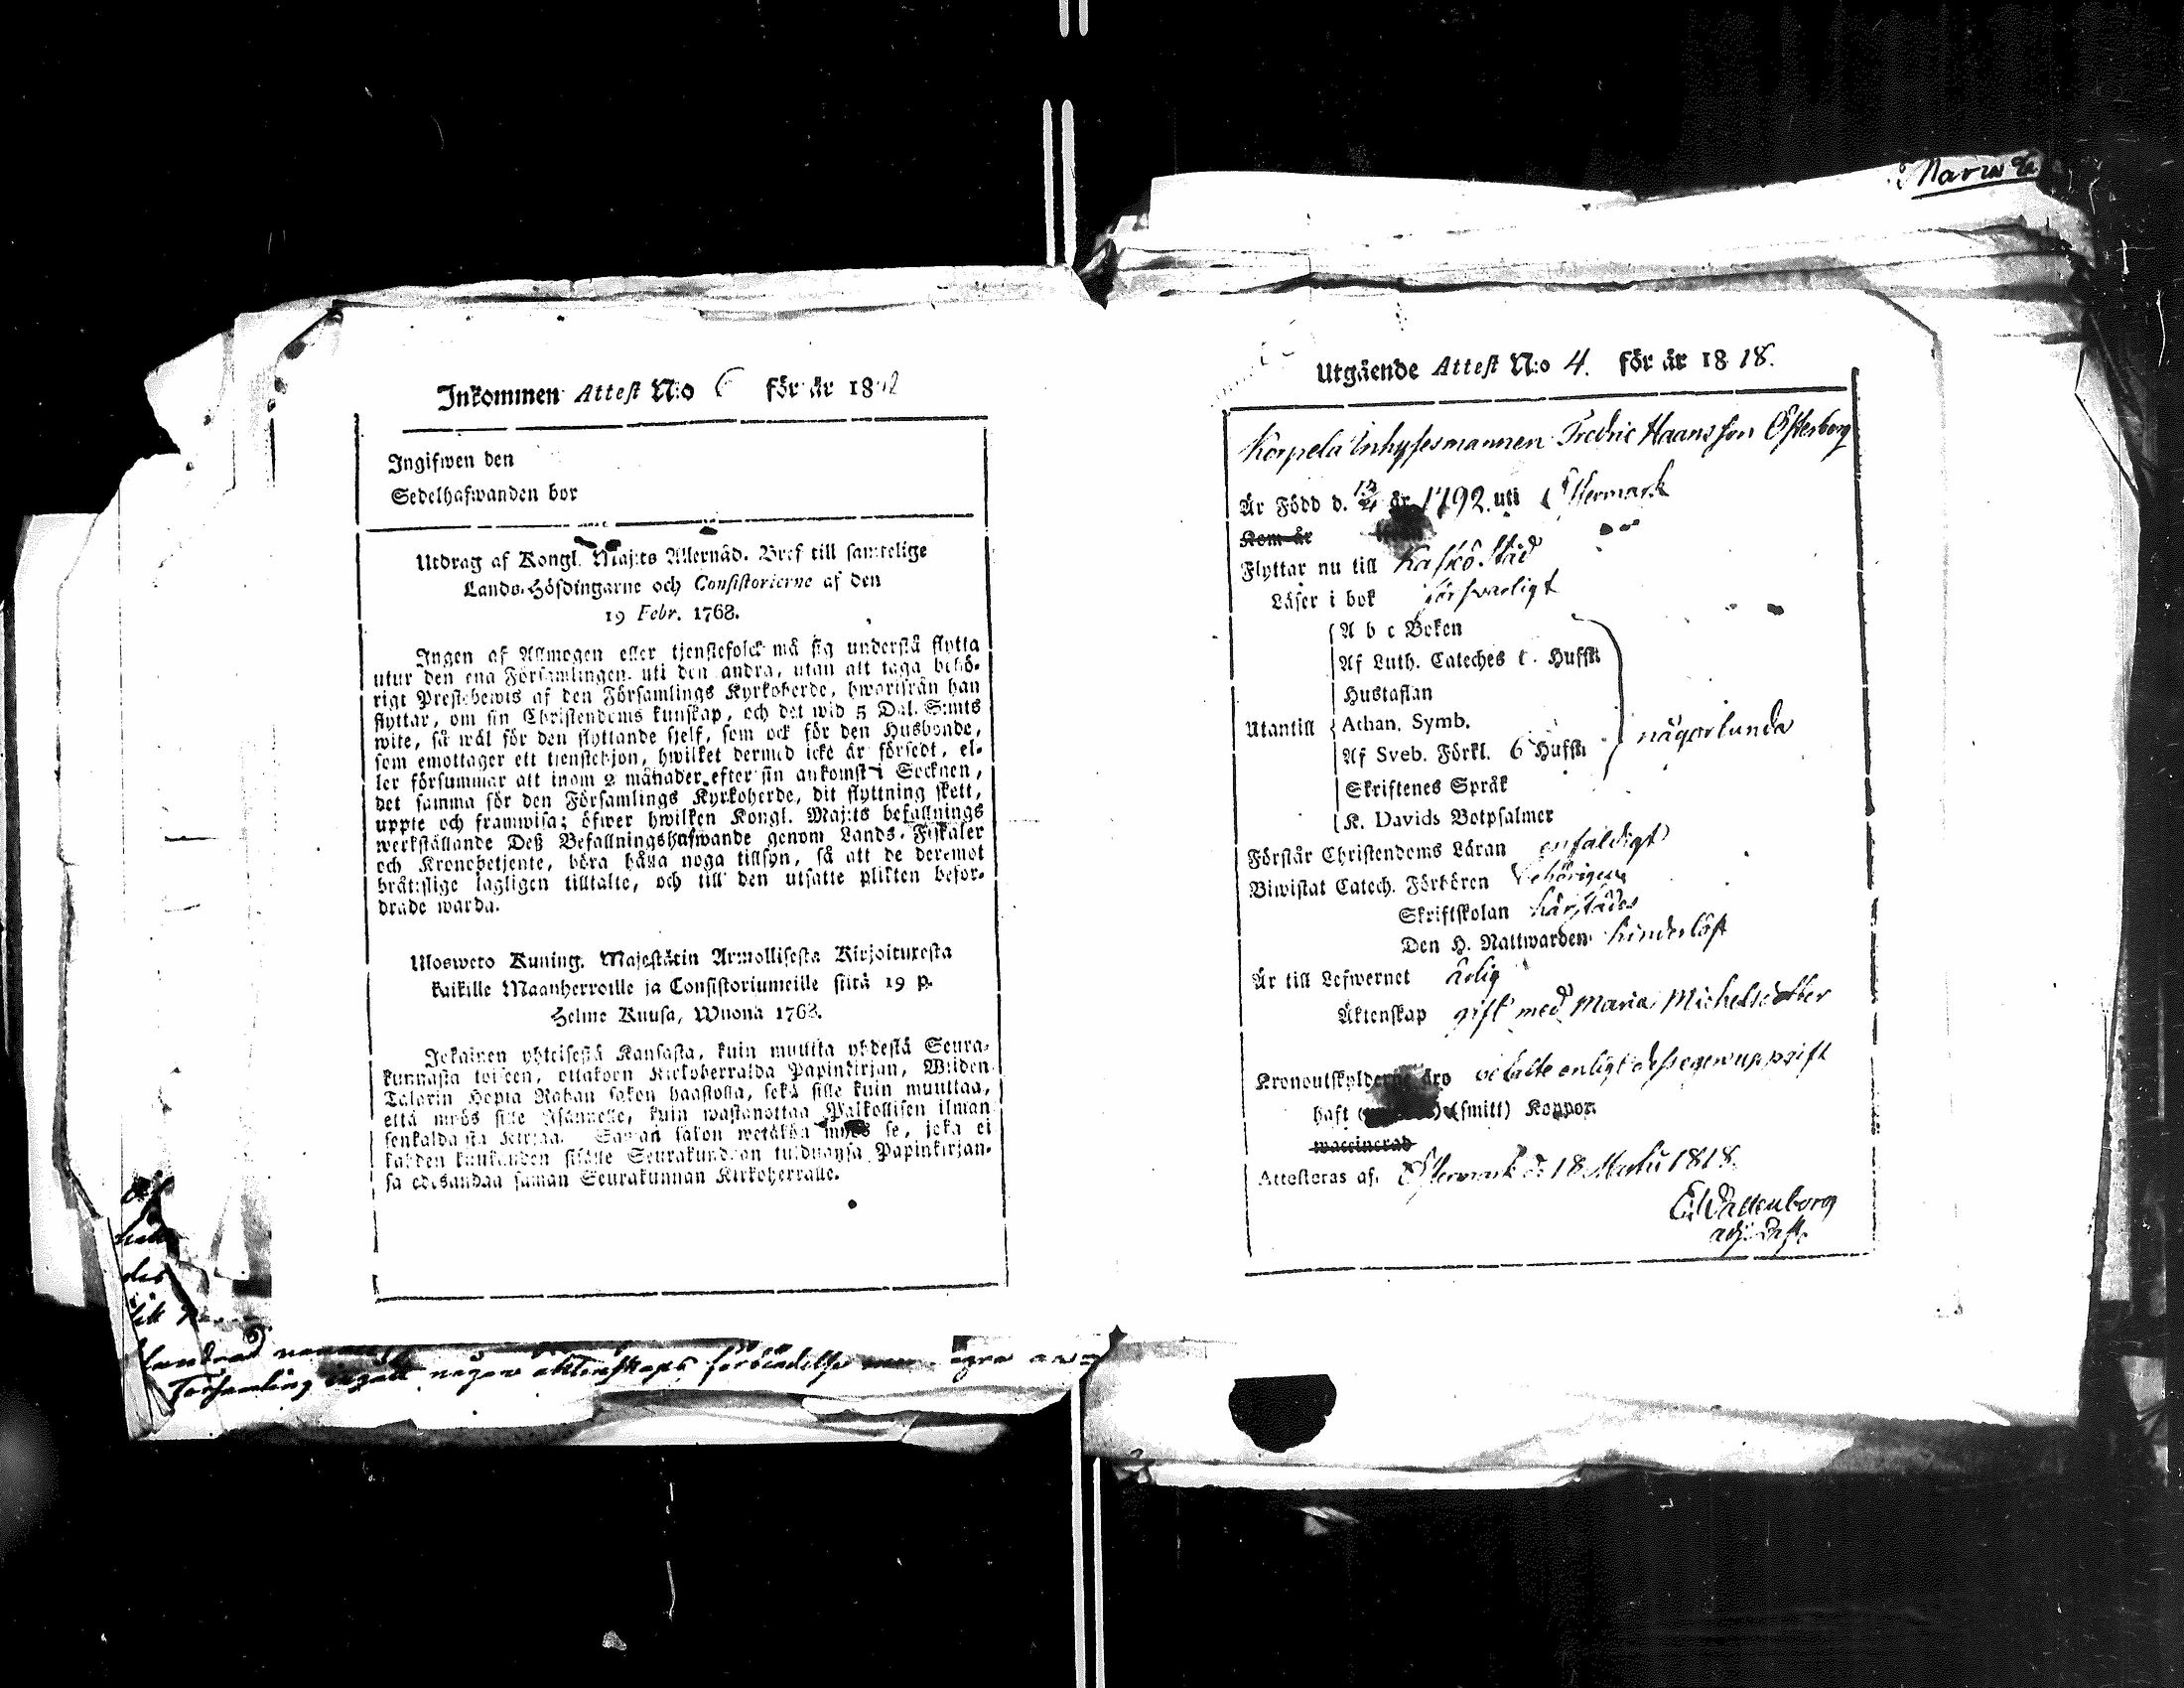 Maria
Inkommen Attest N:o 6 för år 18
Ingifwen den
Sedelhafwanden bor
Utdrag af Kongl. Maj:ts Allernåd. Bref till samtelige
Lands-Höfdingarne och Consistorierne af den
19 Febr. 1768.
Ingen af Allmogen eller tjenstefolck må sig understå flytta
utur den ena Församlingen uti den andra, utan att taga behö-
rigt Prestebewis af den Församlings Kyrkoherde, hwarifrån han
flyttar, om sin Christendoms kunskap, och det wid 5 Dal. S:mts
wite, så wäl för den flyttande sjelf, som ock för den Husbonde,
som emottager ett tjenstehjon, hwilket dermed icke är försedt, el-
ler försummar att inom 2 månader efter sin ankomst i Socknen,
det samma för den Församlings Kyrkoherde, dit flyttning skett,
uppte och framwisa; öfwer hwilken Kongl. Maj:ts befallnings
werkställande Deß Befallningshafwande genom Lands-Fiskaler
och Kronobetjente, böra hålla noga tillsyn, så att de deremot
bråtslige lagligen tilltalte, och till den utsatte plikten befor-
drade warda.
Ulosweto Kuning. Majestätin Armollisesta Kirjoituxesta
kaikille Maanherroille ja Consistoriumeille siitä 19 p.
Helme Kuusa, Wuonä 1768.
Jokainen yhteisestä Kansasta, kuin muutta yhdestä Seura-
kunnasta toiseen, ottakoon Kirkoherralda Papinkirjan, Wiiden
Talarin Hopia Rahan sakon haastolla, sekä sille kuin muuttaa,
että myös sille Isännelle, kuin wastanottaa Palkollisen ilman
senkaldaista kirjaa. Saman sakon wetäkön myös se, joka ei
kahden kuukauden sisälle Seurakundaan tulduansa Papinkirjan-
sa edesandaa saman Seurakunnan Kirkoherralle.
Församling ingått någon äktenskaps förbindelse
Utgående Attest N:o 4. för år 18 18.
Korpela Inhysesmannen Fredric Haansson Österberg
Är Född d. år 1792. uti Östermark
Kom år
Flyttar nu till Kaskö Stad
Läser i bok försvarligt
A b c Boken
Af Luth. Cateches Hufst.
Hustaflan
Utantill Athan. Symb. någorlunda
Af Sveb. Förkl. 6 Hufst.
Skriftenes Språk
K. Davids Botpsalmer
Förstår Christendoms Läran enfaldigt
Biwistat Catech. Förhören behörigen
Skriftskolan härstädes
Den H. Nattwarden hinderlöst
Är till Lefwernet ärlig
Äktenskap gift med Maria Michelsdotter
Kronoutskylderne äro betalte enligt dess egen uppgift
haft (smitt) Koppor.
waccinerad
Attesteras af. Östermark d 18 Martii 1818.